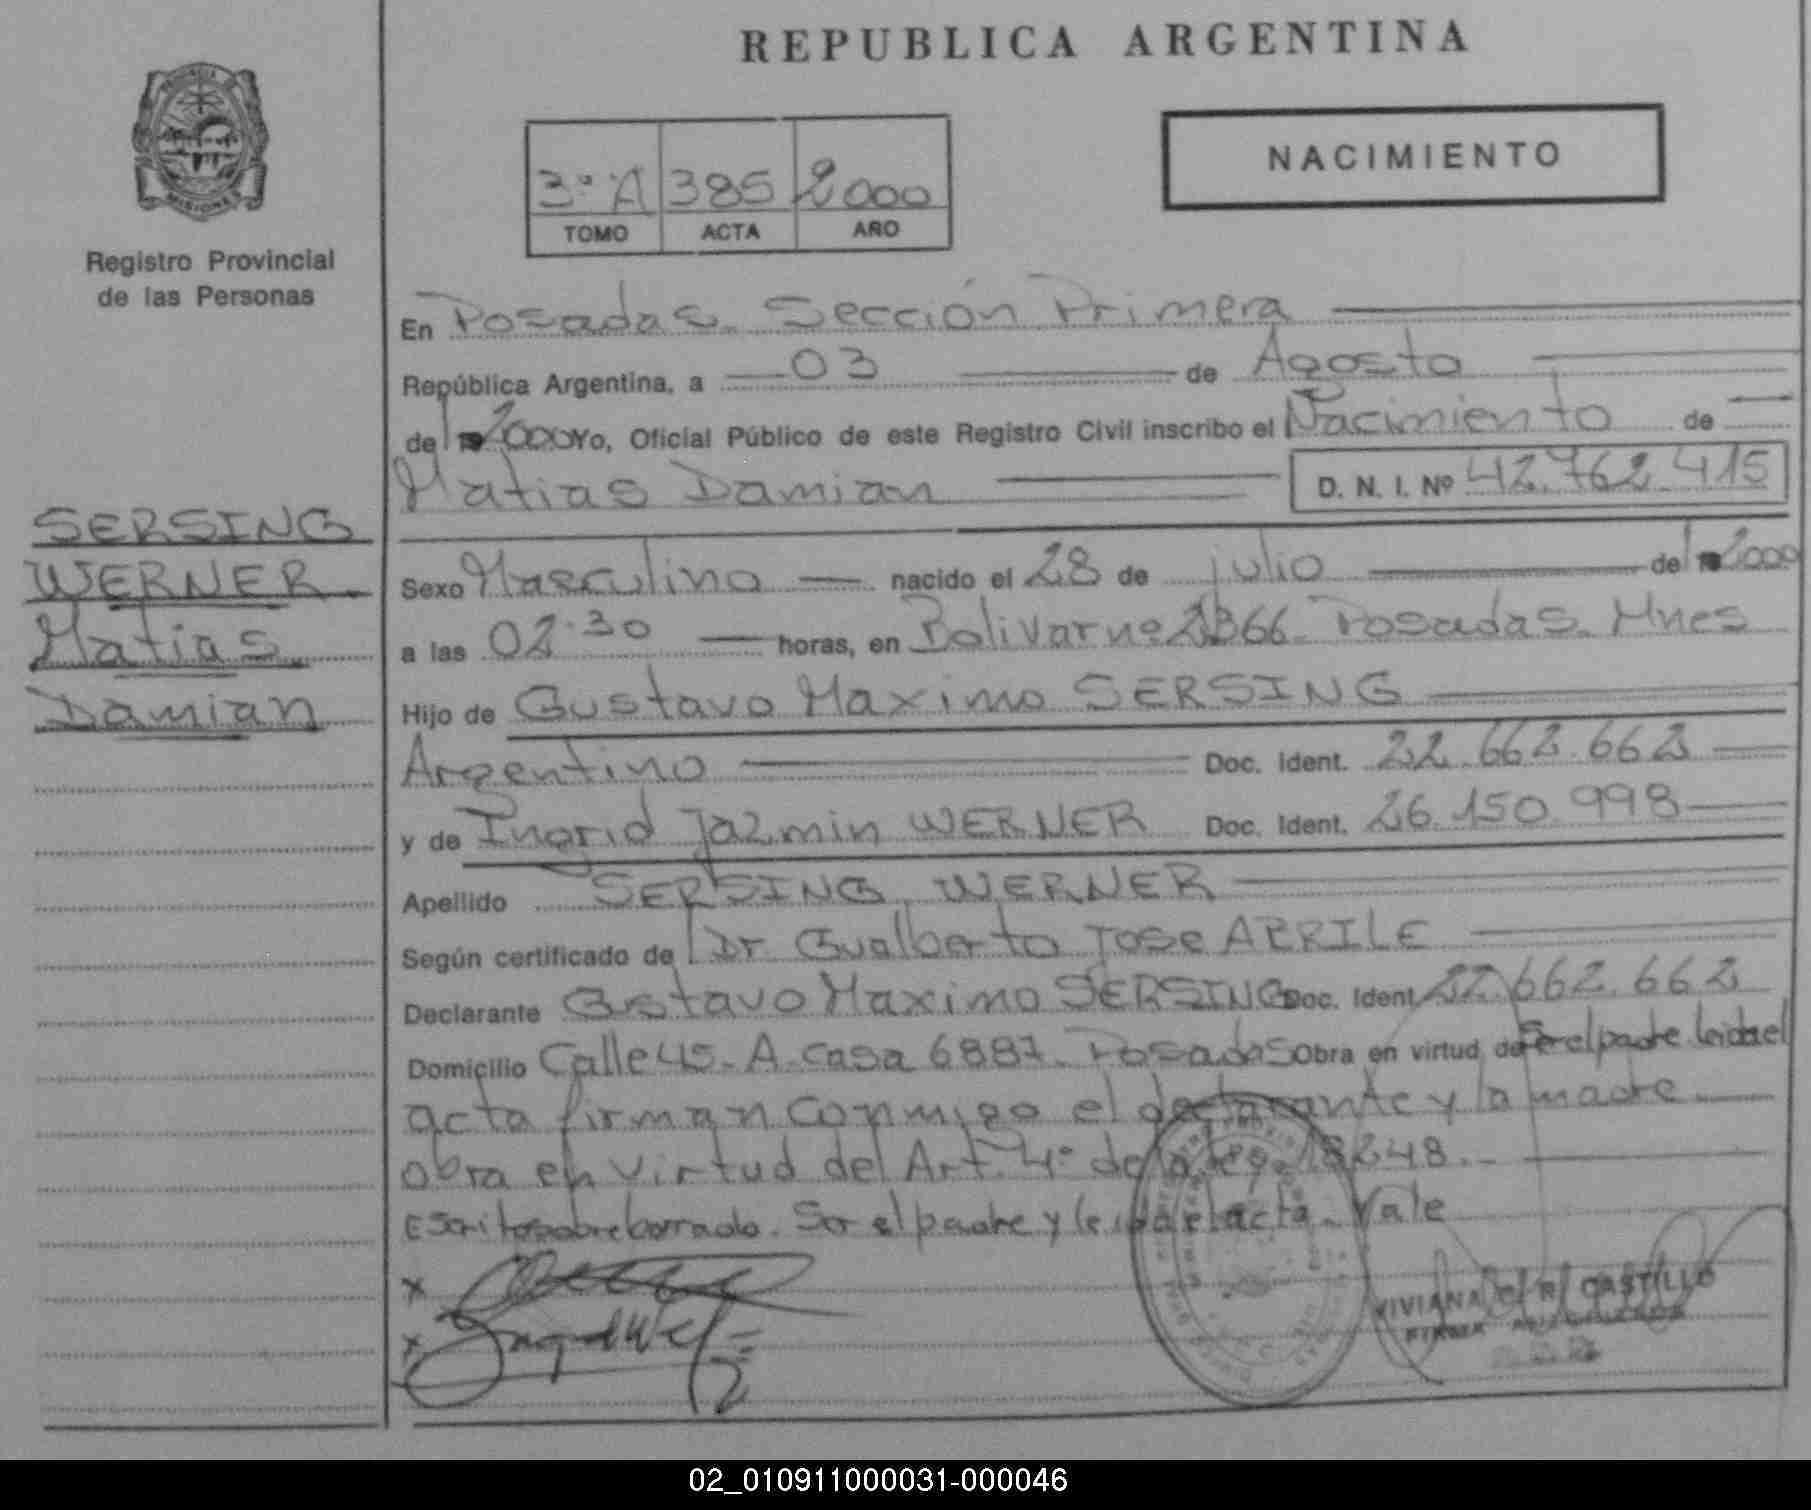 REPUBLICA ARGENTINA
MISIONES
Registro Provincial
de las Personas
3º A 385 2000
TOMO ACTA AÑO
NACIMIENTO
En Posadas. Sección Primera
República Argentina, a 03 de Agosto
de 2000 Yo, Oficial Público de este Registro Civil inscribo el Nacimiento de
Matias Damian D. N. I. Nº 42.762.415
SERSING
WERNER.
Matias
Damian
Sexo Masculino nacido el 28 de julio de 2000
a las 02.30 horas, en Bolivar nº 2366. Posadas. Mnes
Hijo de Gustavo Maximo SERSING
Argentino Doc. Ident. 22.662.662
y de Ingrid Jazmin WERNER Doc. Ident. 26.150.998
Apellido SERSING WERNER
Según certificado de Dr. Gualberto Jose ABRILE
Declarante Gustavo Maximo SERSING Doc. Ident 22.662.662
Domicilio Calle 45. A. casa 6887. Posadas Obra en virtud de Ser el padre leida el
acta firman conmigo el declarante y la madre
obra en virtud del Art. 4º de la ley 18248.
Escrito sobre borrado. Ser el padre y leida el acta. Vale
VIVIANA CASTILLO
02_010911000031-000046